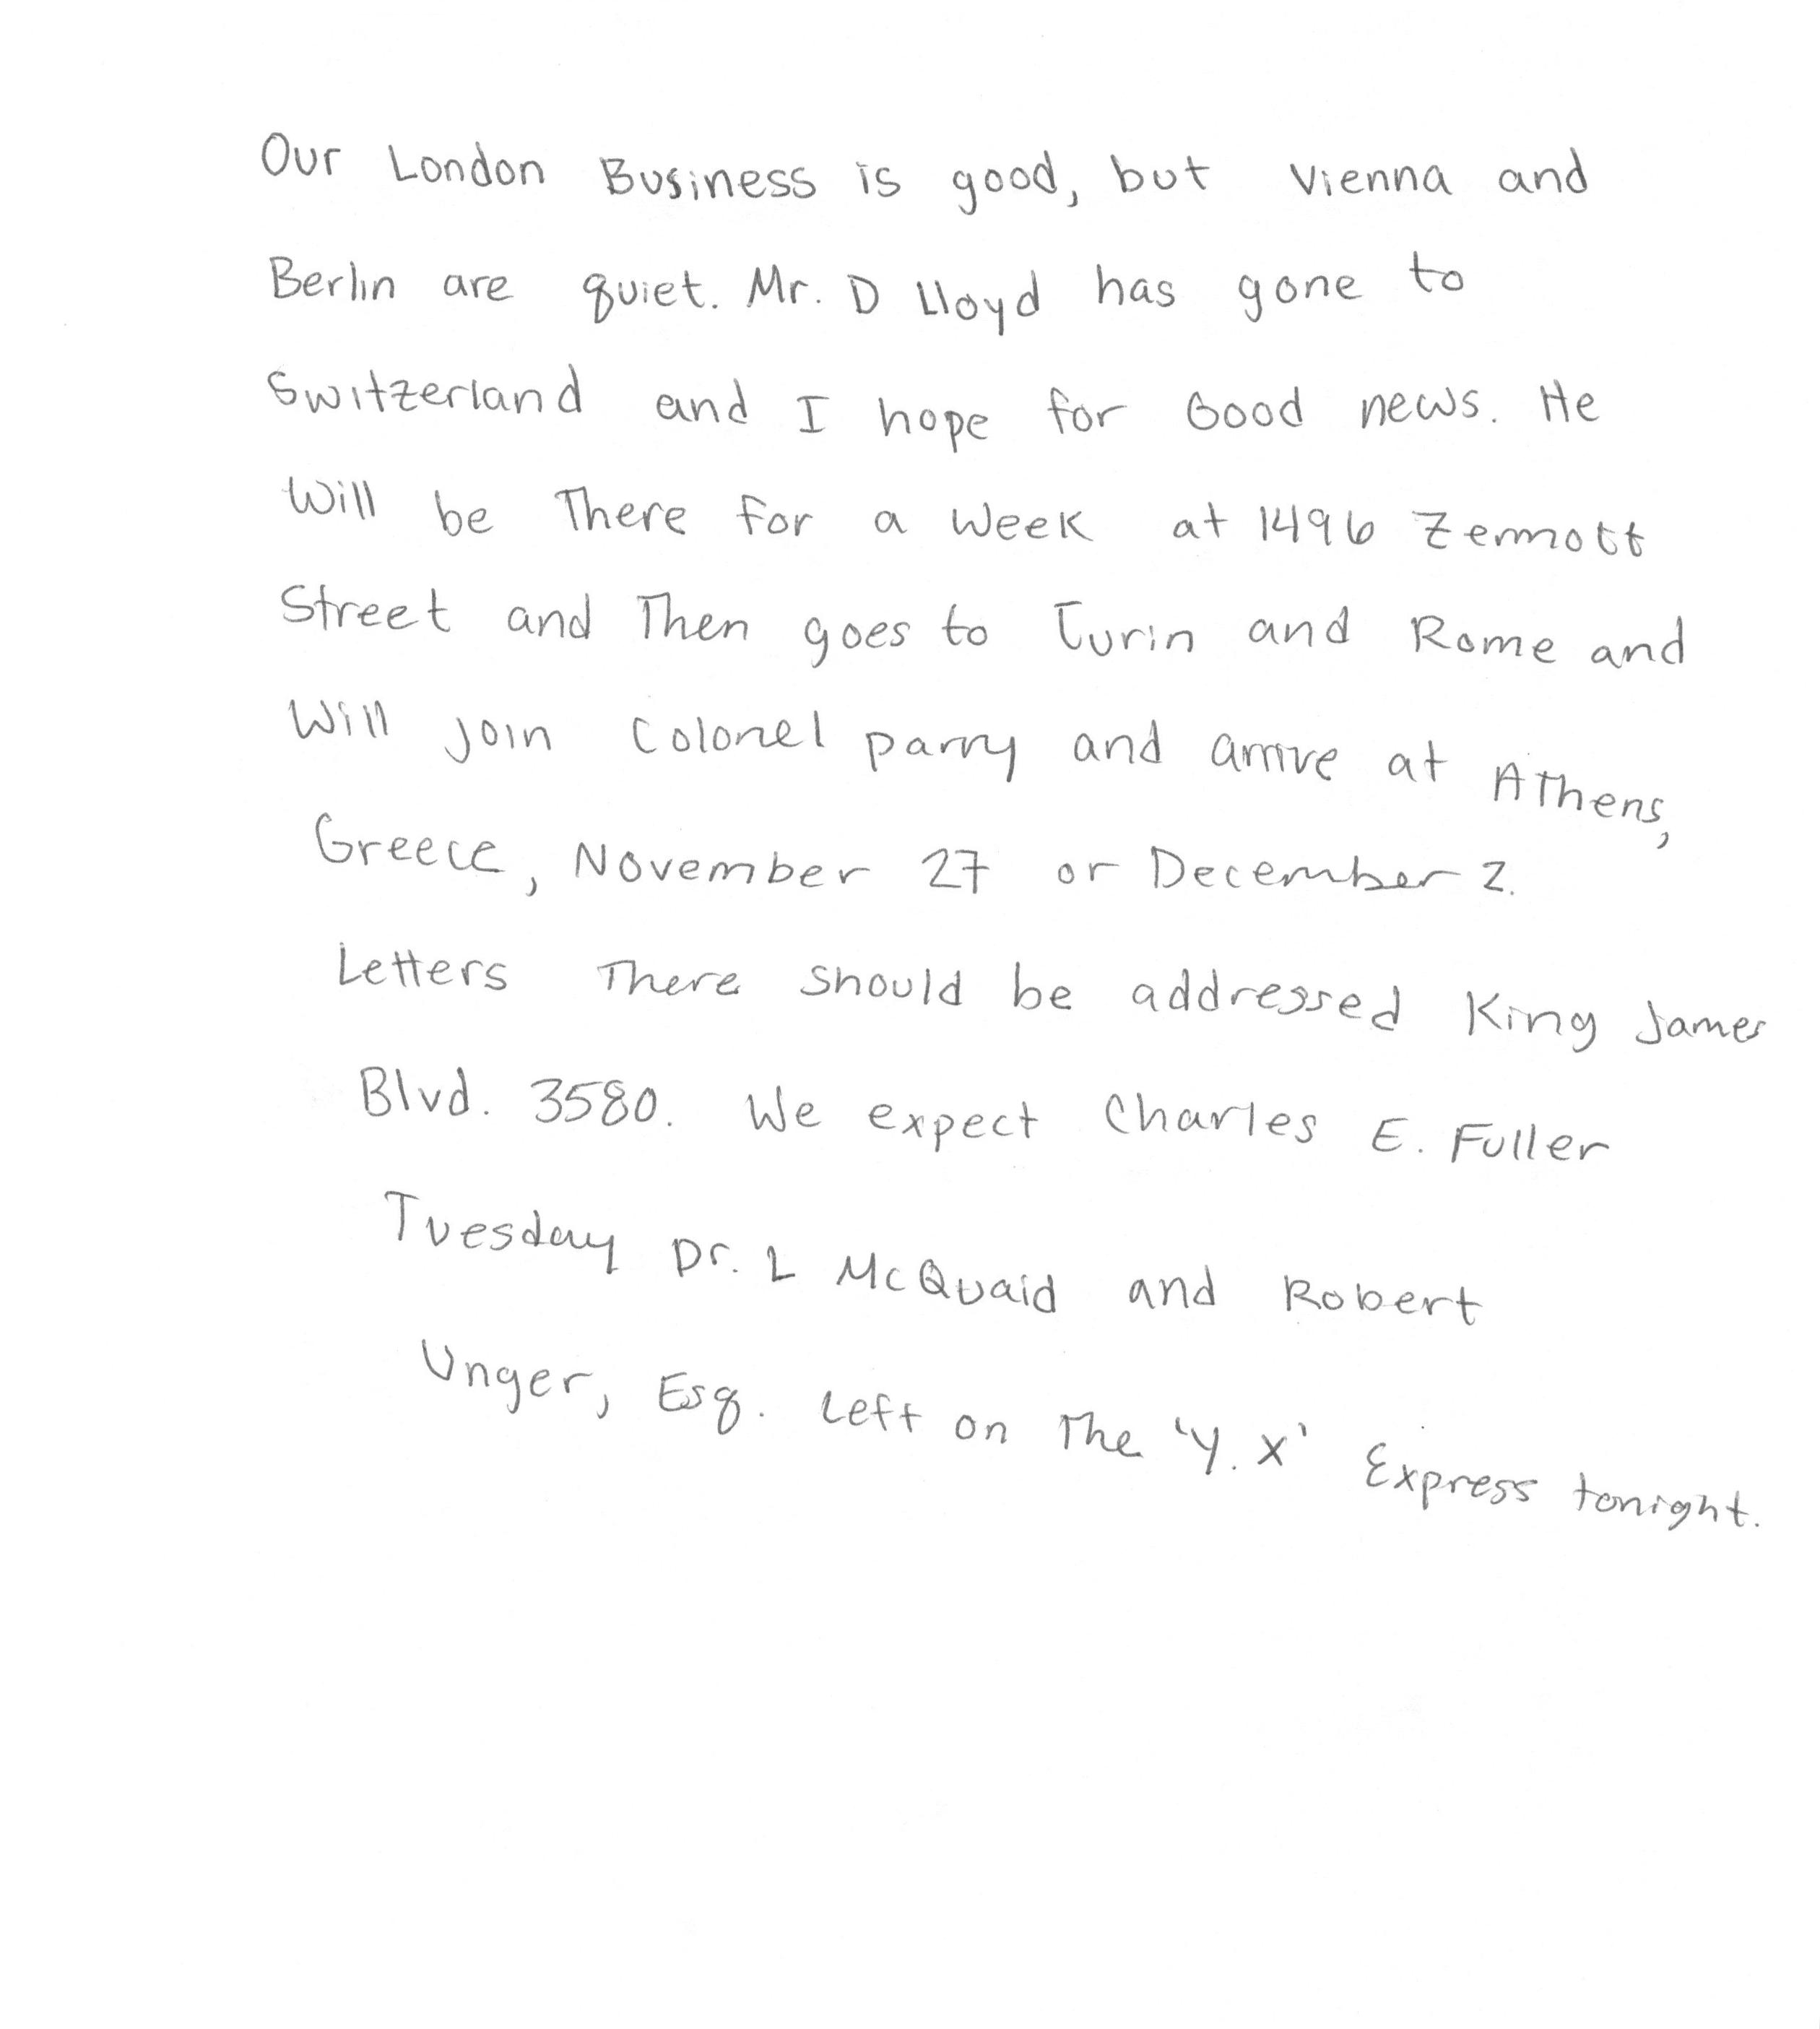 Our London Business is good, but Vienna and
Berlin are quiet. Mr. D Lloyd has gone to
Switzerland and I hope for Good news. He
Will be There for a week at 1496 Zermott
Street and Then goes to Turin and Rome and
Will join Colonel parry and arrive at AThens,
Greece, November 27 or December 2.
Letters There should be addressed King James
Blvd. 3580. We expect Charles E. Fuller
Tuesday Dr. L McQuaid and Robert
Unger, Esq. left on The 'Y.X' Express tonight.